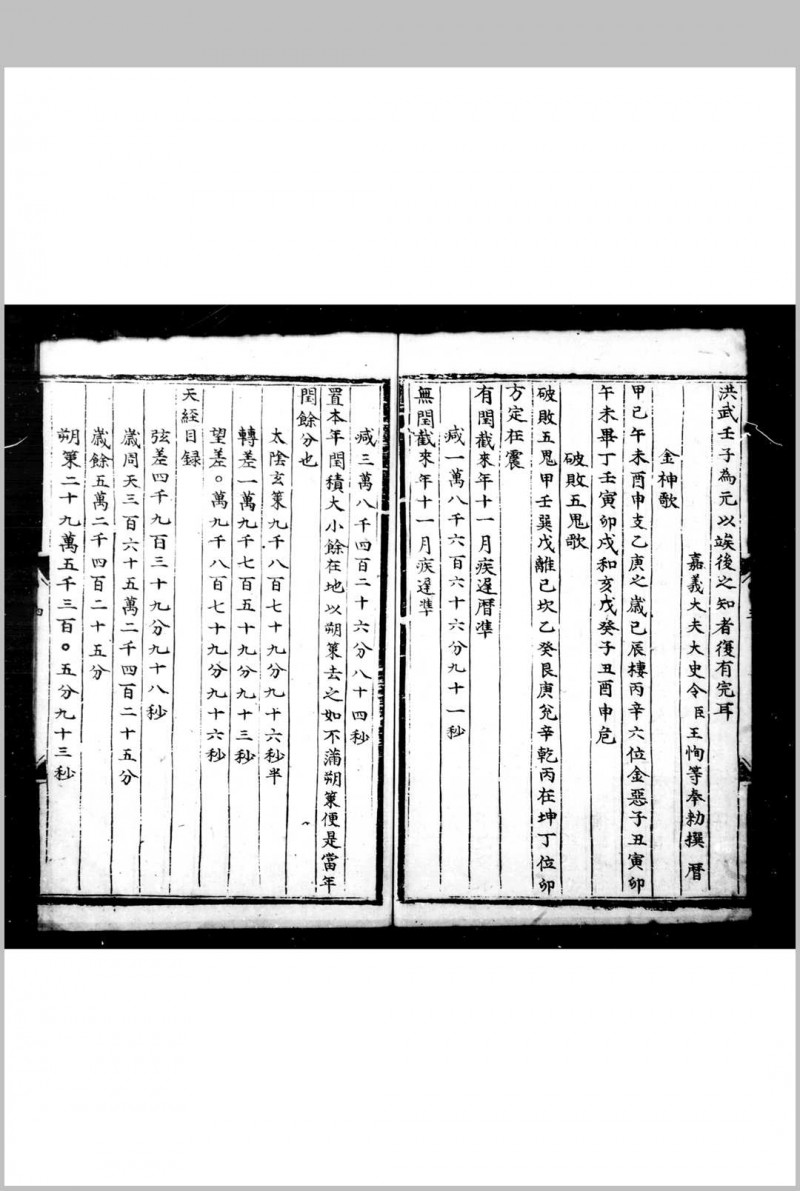 洪武壬子為元以竢後之知者復有完耳
嘉義大夫大史令臣王恂等奉勑撰曆
金神歌
甲己午未酉申支乙庚之歲已辰棲丙辛六位金惡子丑寅卯
午未畢丁壬寅卯戌和亥戊癸子丑酉申危
破敗五鬼歌
破敗五鬼甲壬巽戊離己坎乙癸艮庚兊辛乾丙在坤丁位卯
方定在震
有閏截來年十一月疾遟曆準
减一萬八千六百六十六分九十一秒
無閏截來年十一月疾遟準
减三萬八千四百二十六分八十四秒
置本年閏積大小餘在地以朔策去之如不滿朔策便是當年
閏餘分也
太陰玄策九千八百七十九分九十六秒半
轉差一萬九千七百五十九分九十三秒
望差〇萬九千八百七十九分九十六秒
天経目録
弦差四千九百三十九分九十八秒
歲周天三百六十五萬二千四百二十五分
歲餘五萬二千四百二十五分
朔策二十九萬五千三百〇五分九十三秒